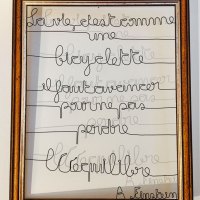 La vie, c'est comme
une
bicyclette
il faut avancer
pour ne pas
perdre
l'équilibre
A. Einstein